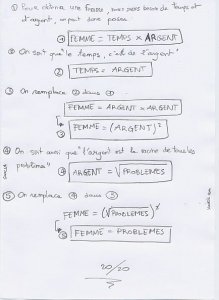 ① Pour obtenir une Femme, nous avons besoin de Temps et
d'argent, on peut donc poser
① FEMME = TEMPS × ARGENT
② On sait que "le temps, c'est de l'argent"
② TEMPS = ARGENT
③ On remplace ② dans ①
FEMME = ARGENT × ARGENT
③ FEMME = (ARGENT)²
④ On sait aussi que "l'argent est la racine de tous les
problèmes"
④ ARGENT = √PROBLEMES
⑤ On remplace ④ dans ③
FEMME = (√PROBLEMES)²
⑤ FEMME = PROBLEMES
20/20